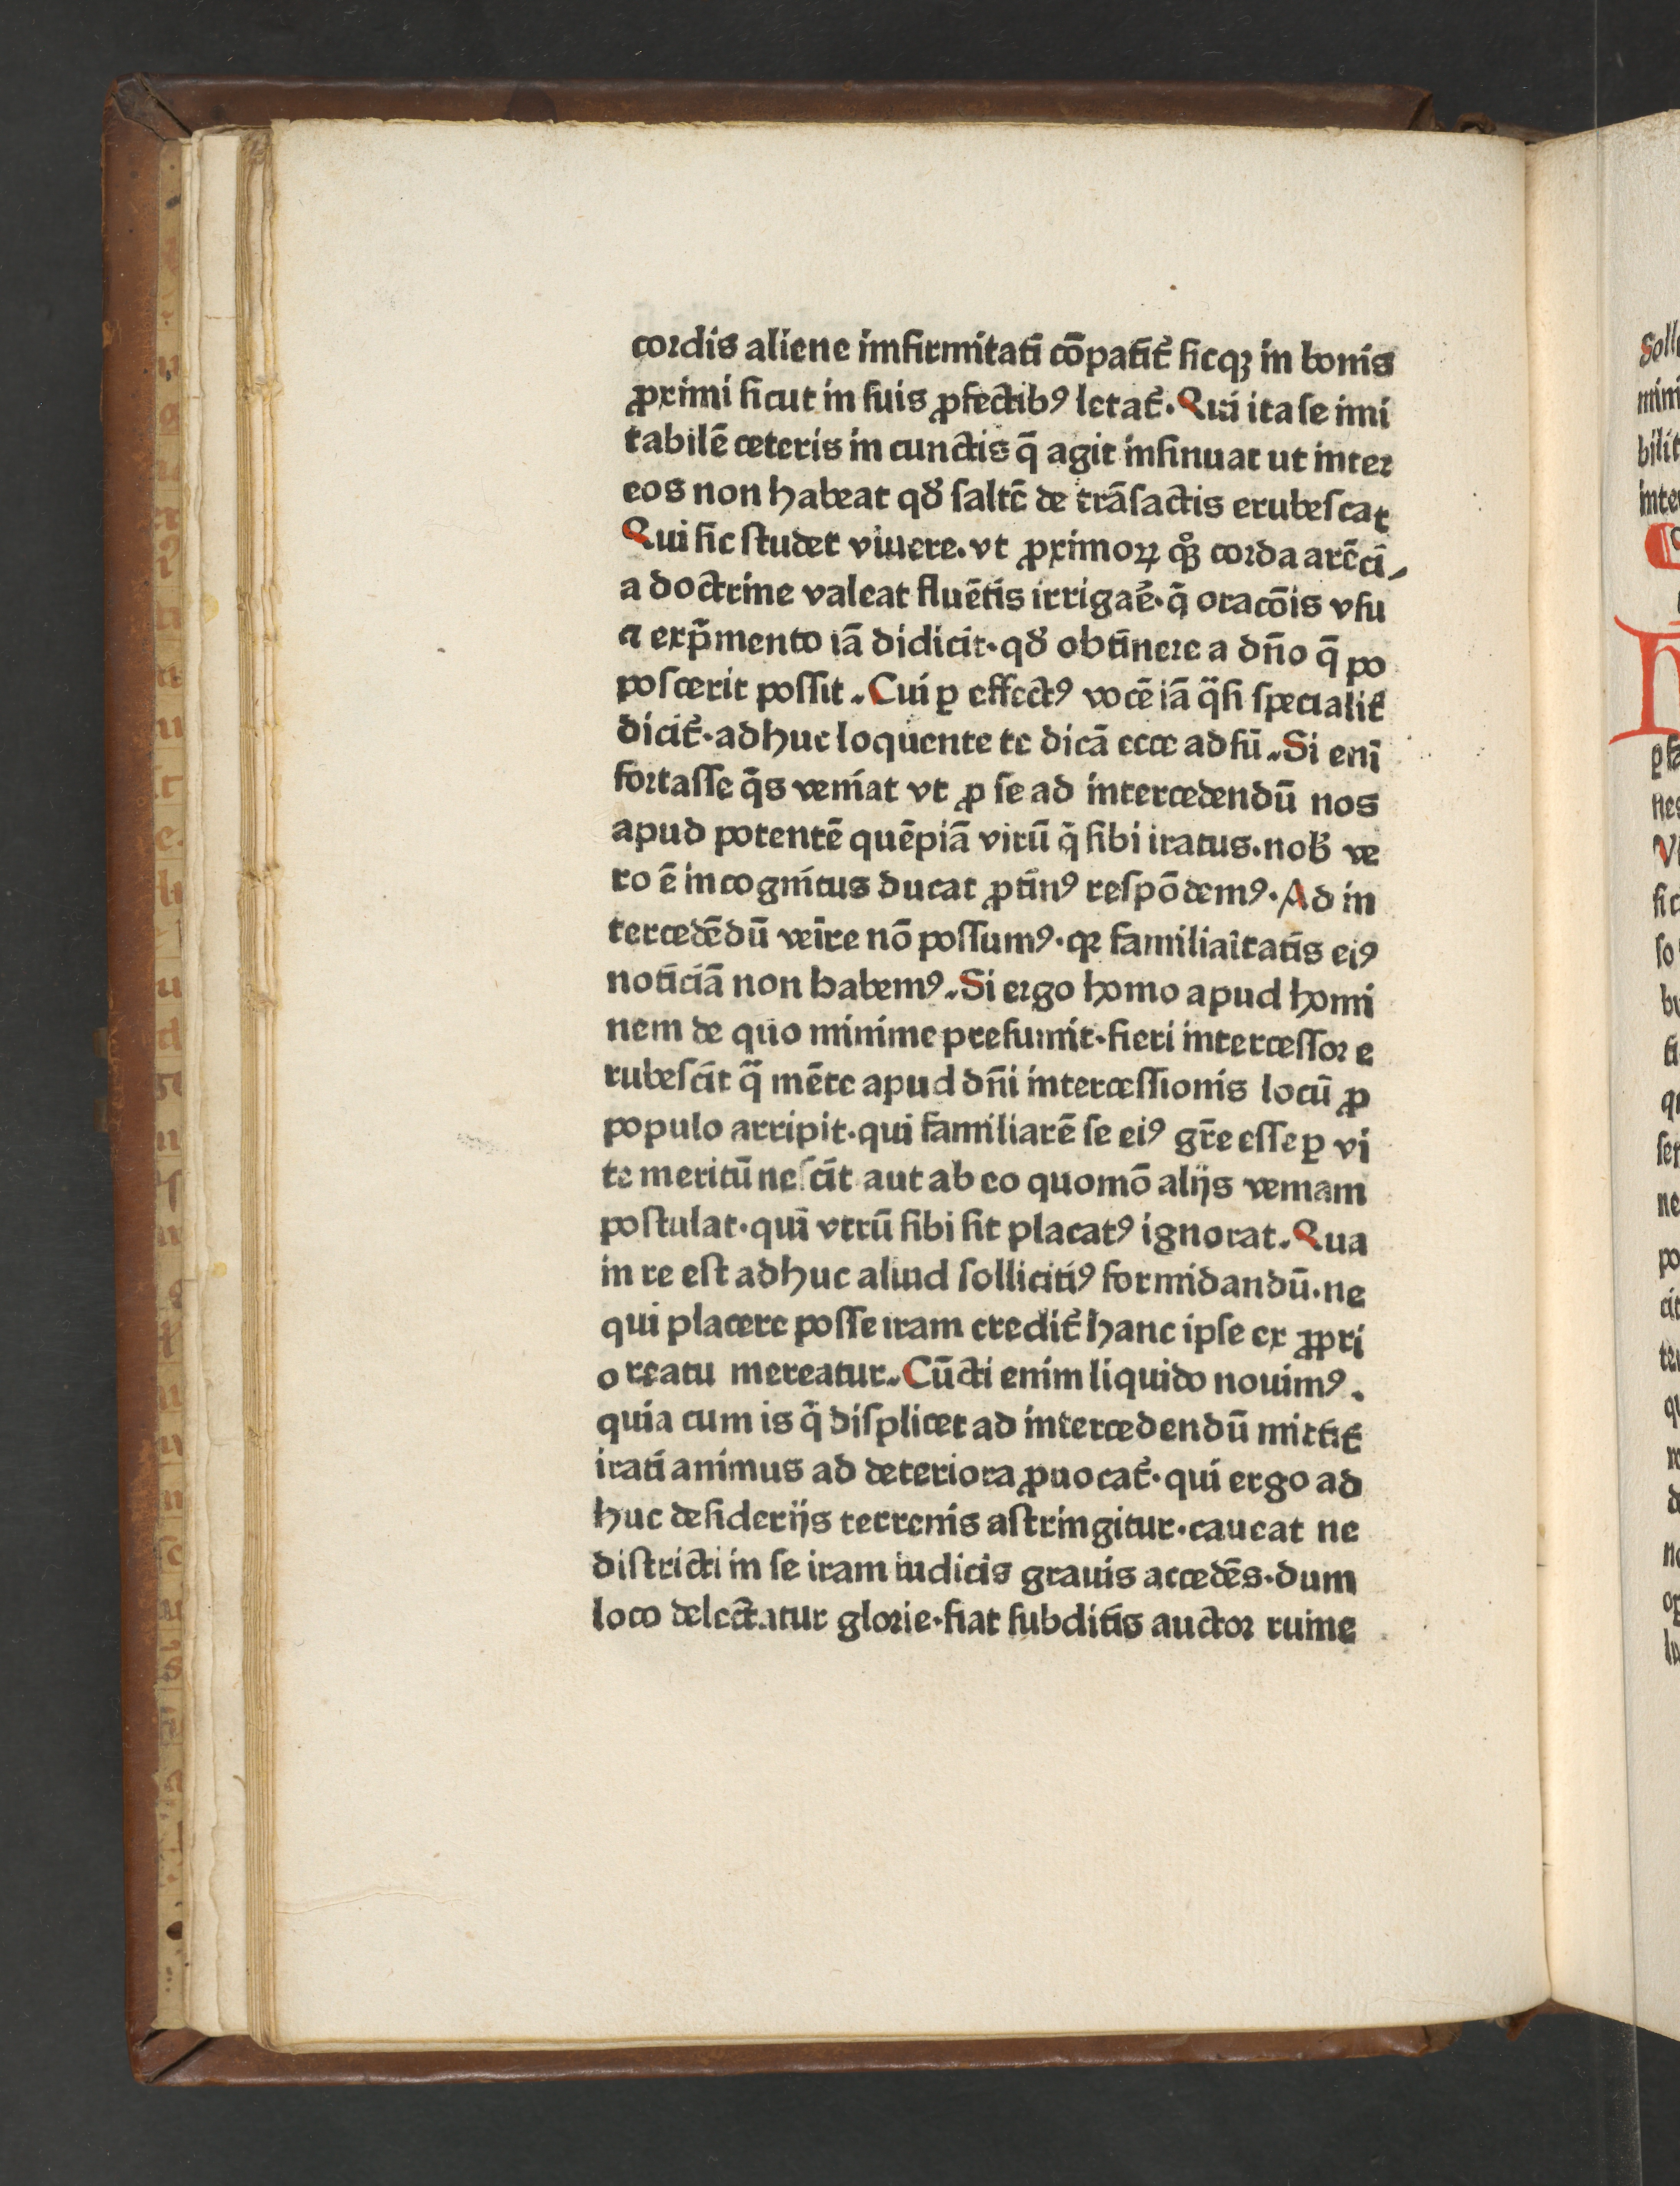 cordis aliene imfirmitati cōpatit᷑ sicqꝫ in bonis
ꝓximi sicut in suis ꝓfectibꝰ letat᷑. Qui ita se imi
tabilē ceteris in cunctis q̄ agit insinuat ut inter
eos non habeat qđ saltē de trāsactis erubescat
Qui sic studet viuere. vt ꝓximoꝝ qͦꝫ corda arēci⸗
a doctrine valeat fluētis irrigaē. q̄ oracōis vsu
⁊ exp̄mento iā didicit. qđ obtinere a dn̄o q̄ po
poscerit possit. Cui ꝑ effectꝰ vocē iā q̄si specialit᷑
dicit᷑. adhuc loquente te dicā ecce adsū. Si enī
fortasse q̄s veniat vt ꝓ se ad intercedendū nos
apud potentē quēpiā virū q̄ sibi iratus. nob̄ ve
ro ē incognitus ducat ꝓtinꝰ respōdemꝰ. Ad in
tercedēdū veīre nō possumꝰ. qꝛ familiaītatis eiꝰ
noticiā non habemꝰ. Si ergo homo apud homi
nem de quo minime presumit. fieri intercessor e
rubescit q̄ mēte apud dn̄i intercessionis locū ꝓ
populo arripit. qui familiarē se eiꝰ gr̄e esse ꝑ vi
te meritū nescit aut ab eo quomō alijs veniam
postulat. qui vtrū sibi sit placatꝰ ignorat. Qua
in re est adhuc aliud sollicitiꝰ formidandū. ne
qui placere posse iram credit᷑ hanc ipse ex ꝓpri
o reatu mereatur. Cūcti enim liquido nouimꝰ.
quia cum is q̄ displicet ad intercedendū mittit᷑
irati animus ad deteriora ꝓuocat᷑. qui ergo ad
huc desiderijs terrenis astringitur. caueat ne
districti in se iram iudicis grauis accedēs. dum
loco delectatur glorie. fiat subditis auctor ruine